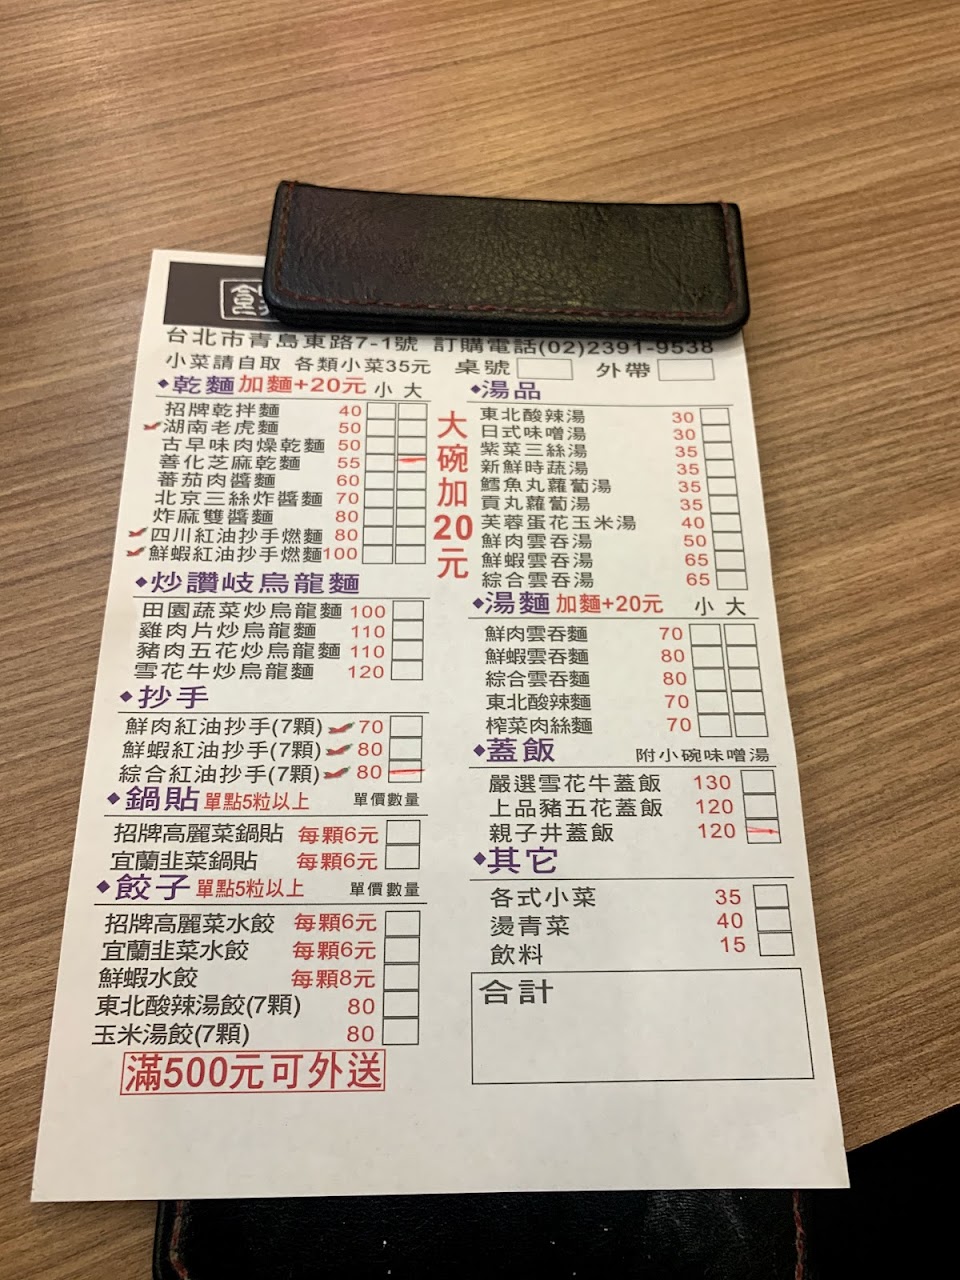 台北市青島東路7-1號 訂購電話(02)2391-9538
小菜請自取 各類小菜35元 桌號 外帶
◆乾麵 加麵+20元 小 大
招牌乾拌麵 40
湖南老虎麵 50
古早味肉燥乾麵 50
善化芝麻乾麵 55
蕃茄肉醬麵 60
北京三絲炸醬麵 70
炸麻雙醬麵 80
四川紅油抄手燃麵 80
鮮蝦紅油抄手燃麵 100
大碗加20元
◆炒讚岐烏龍麵
田園蔬菜炒烏龍麵 100
雞肉片炒烏龍麵 110
豬肉五花炒烏龍麵 110
雪花牛炒烏龍麵 120
◆抄手
鮮肉紅油抄手(7顆) 70
鮮蝦紅油抄手(7顆) 80
綜合紅油抄手(7顆) 80
◆鍋貼 單點5粒以上 單價數量
招牌高麗菜鍋貼 每顆6元
宜蘭韭菜鍋貼 每顆6元
◆餃子 單點5粒以上 單價數量
招牌高麗菜水餃 每顆6元
宜蘭韭菜水餃 每顆6元
鮮蝦水餃 每顆8元
東北酸辣湯餃(7顆) 80
玉米湯餃(7顆) 80
滿500元可外送
◆湯品
東北酸辣湯 30
日式味噌湯 30
紫菜三絲湯 35
新鮮時蔬湯 35
鱈魚丸蘿蔔湯 35
貢丸蘿蔔湯 35
芙蓉蛋花玉米湯 40
鮮肉雲吞湯 50
鮮蝦雲吞湯 65
綜合雲吞湯 65
◆湯麵 加麵+20元 小 大
鮮肉雲吞麵 70
鮮蝦雲吞麵 80
綜合雲吞麵 80
東北酸辣麵 70
榨菜肉絲麵 70
◆蓋飯 附小碗味噌湯
嚴選雪花牛蓋飯 130
上品豬五花蓋飯 120
親子井蓋飯 120
◆其它
各式小菜 35
燙青菜 40
飲料 15
合計